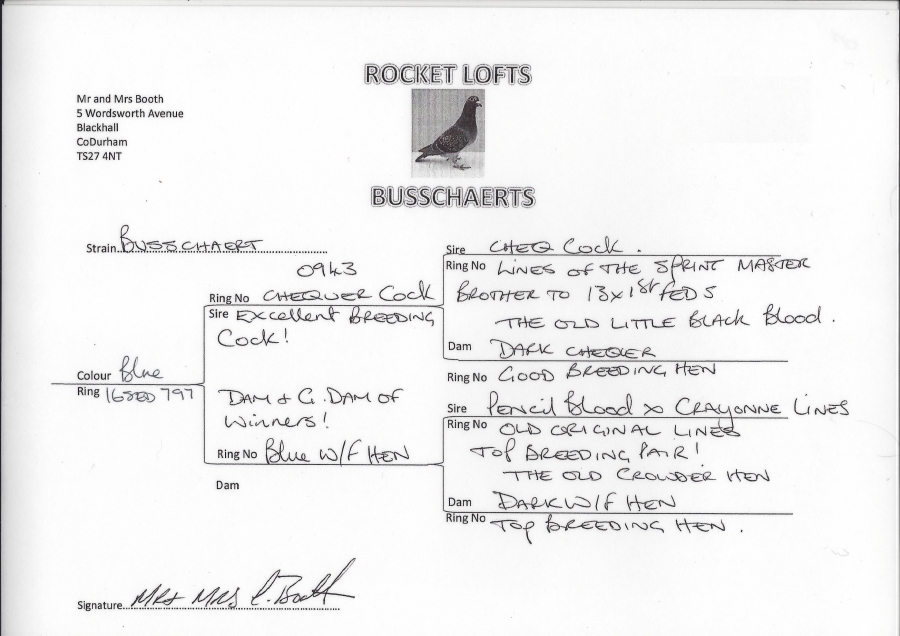 ROCKET LOFTS
Mr and Mrs Booth
5 Wordsworth Avenue
Blackhall
CoDurham
TS27 4NT
BUSSCHAERTS
Strain..BUSSCHAERT
0943
Ring No CHEQUER COCK
Sire EXCELLENT BREEDING
COCK!
Colour Blue
Ring 16SED 797
DAM & G.DAM OF
WINNERS!
Ring No Blue W/F HEN
Dam
Sire CHEQ COCK.
Ring No LINES OF THE SPRINT MASTER
BROTHER TO 13x1st FEDS
THE OLD LITTLE BLACK BLOOD.
Dam DARK CHEQER
Ring No GOOD BREEDING HEN
Sire PENCIL BLOOD x CRAYONNE LINES
Ring No OLD ORIGINAL LINES
TOP BREEDING PAIR!
THE OLD CROWDER HEN
Dam DARK W/F HEN
Ring No TOP BREEDING HEN.
Signature...Mr & Mrs C. Booth